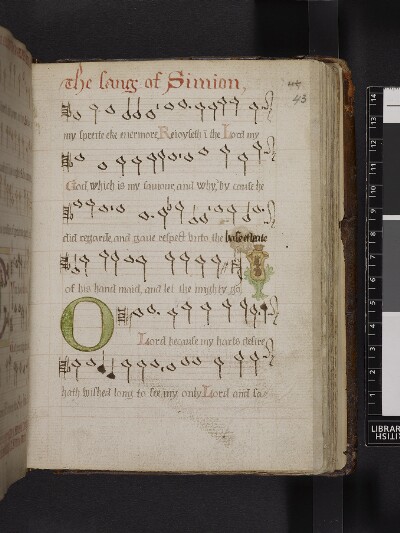 The song of Simion,
43
my spreite eke evermore, Reioyseth i the Lord my
God, which is my saviour, and why, by cause he
did regarde, and gave respect unto the base estate
of his hand maid, and let the mighty go,
O Lord because my harts desire
hath wished long to see, my only Lord and so
LIBRAR
HSITI